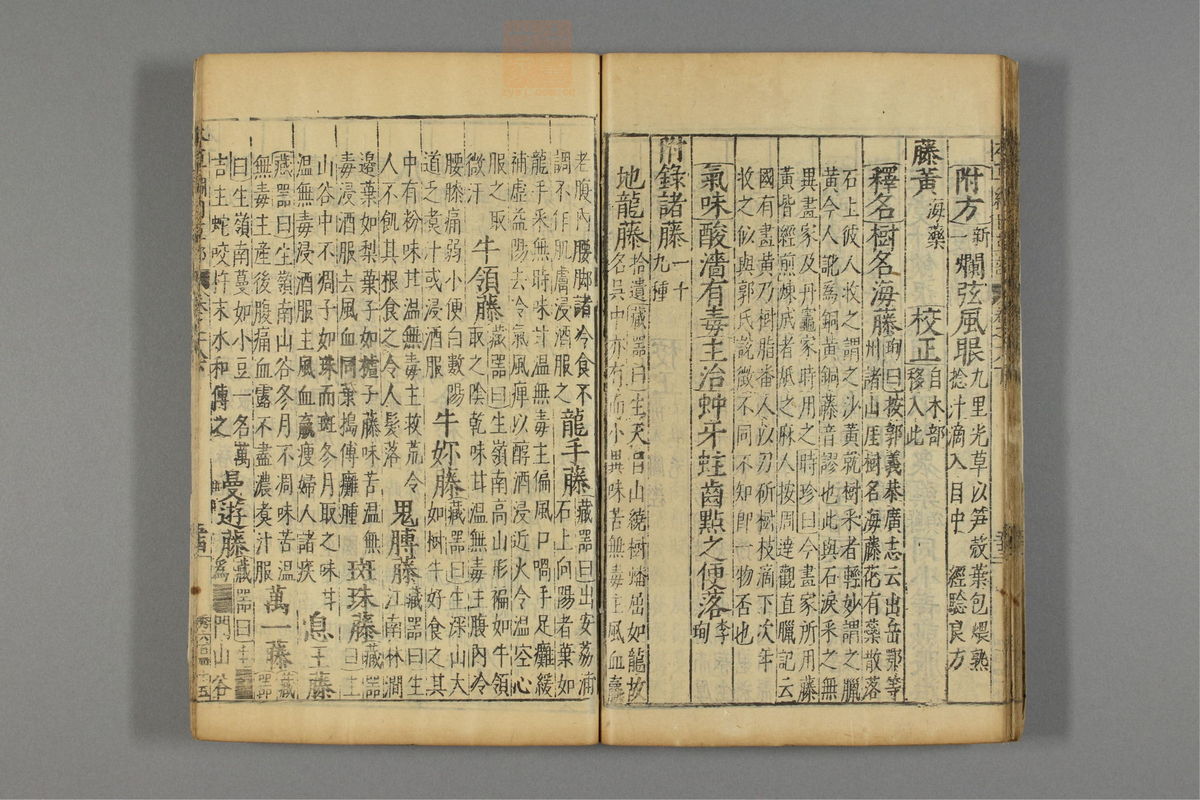 附方新一 爛弦風眼九里光草以笋殼葉包煨熟
捻汁滴入目中 經驗良方
藤黃海藥 校正自木部
移入此
釋名樹名海藤珣曰按郭義恭廣志云出岳鄂等
州諸山厓樹名海藤花有蘂散落
石上彼人收之謂之沙黃就樹采者輕妙謂之臘
黃今人訛爲銅黃銅藤音謬也此與石淚采之無
異畫家及丹竈家時用之時珍曰今畫家所用藤
黃皆經煎煉成者舐之麻人按周達觀直臘記云
國有畫黃乃樹脂番人以刃斫樹枝滴下次年
收之似與郭氏說微不同不知即一物否也
氣味酸濇有毒主治蚛牙蛀齒點之便落李珣
附錄諸藤一十九種
地龍藤拾遺藏器曰生天目山繞樹蟠屈如龍故
名吳中亦有而小異味苦無毒主風血羸
老腹內腰脚諸冷食不
調不作肌膚浸酒服之 龍手藤藏器曰出安荔浦
石上向陽者葉如
龍手采無時味甘溫無毒主偏風口喎手足癱緩
補虛益陽去冷氣風痺以醇酒浸近火令溫空心
服之取
微汗 牛領藤藏器曰生嶺南高山形褊如牛領
取之陰乾味甘溫無毒主腹內冷
腰膝痛弱小便白數陽
道乏煑汁或浸酒服 牛妳藤藏器曰生深山大
如樹牛好食之其
中有粉味甘溫無毒主救荒令
人不飢其根食之令人髮落 鬼膊藤藏器曰生
江南林澗
邊葉如梨葉子如樝子藤味苦溫無
毒浸酒服去風血同葉搗傅癰腫 斑珠藤藏器
曰生
山谷中不凋子如珠而斑冬月取之味甘
溫無毒浸酒服主風血羸瘦婦人諸疾 息王藤藏
器曰生嶺南山谷冬月不凋味苦溫
無毒主產後腹痛血露不盡濃煑汁服 萬一藤藏器
曰生嶺南蔓如小豆一名萬
吉主蛇咬杵末水和傅之 曼遊藤藏器曰生
爲門山谷